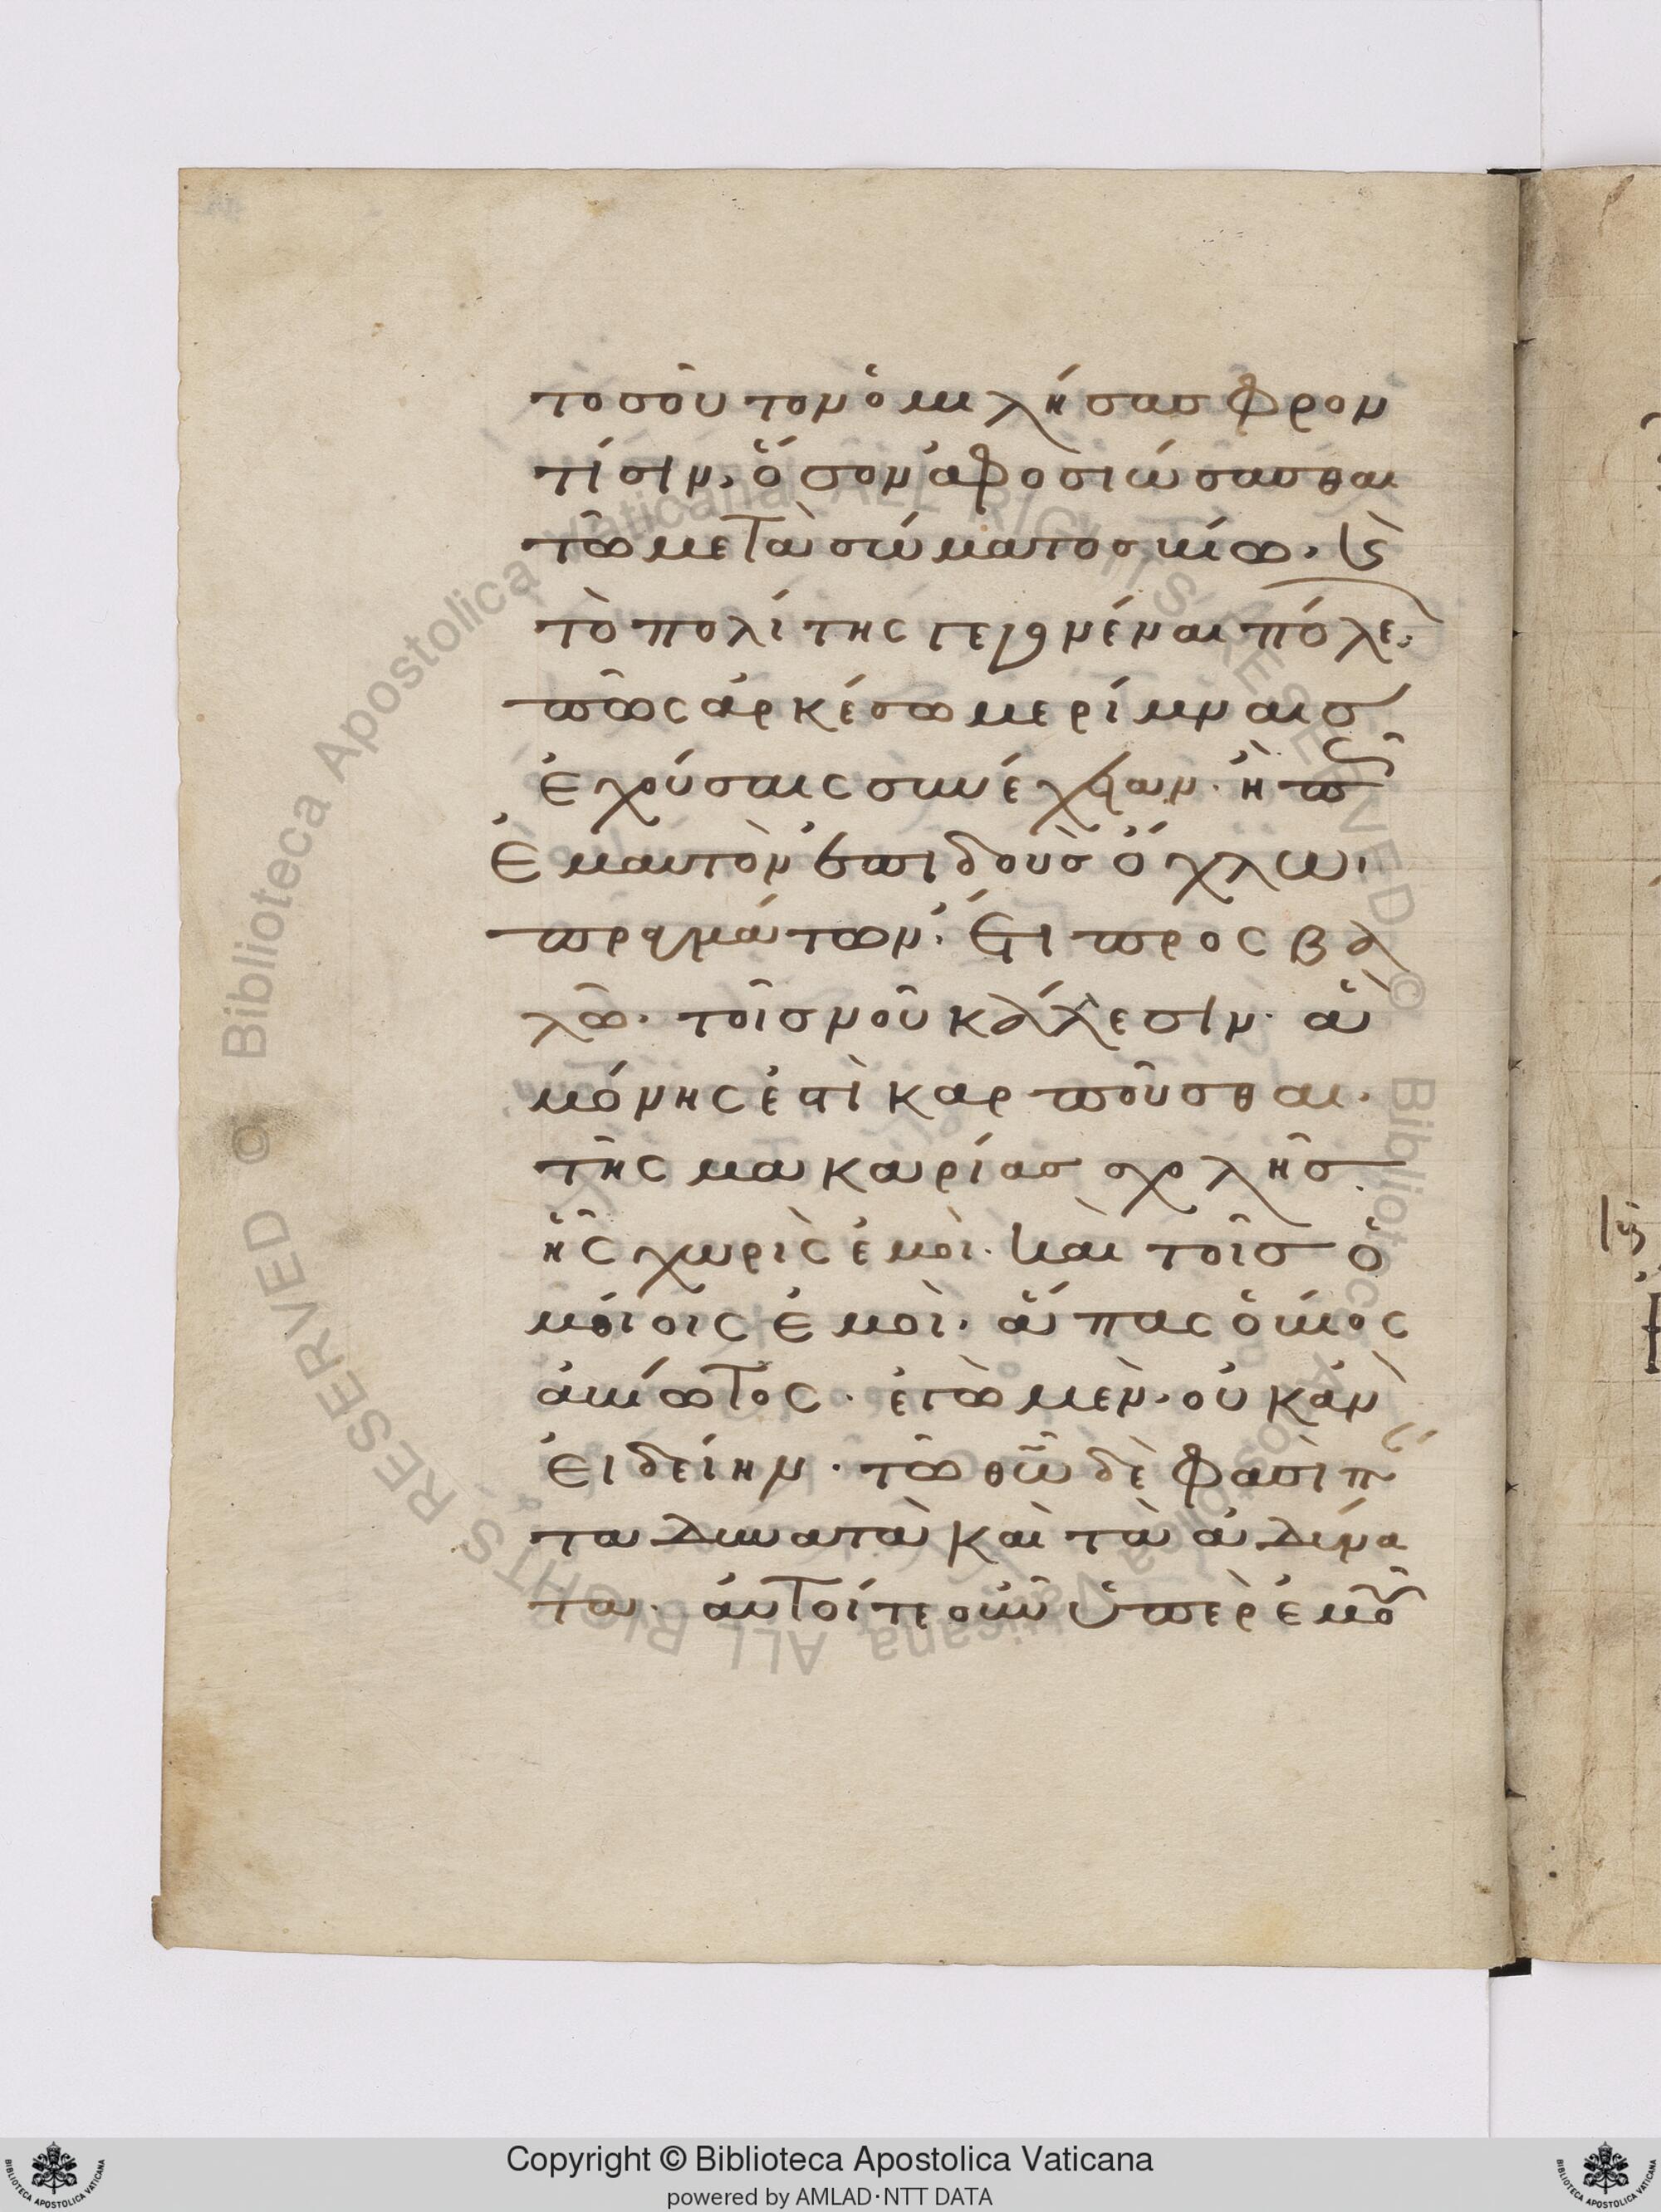 τοσοῦτον ὁμιλήσας φρον
τίσιν, ὅσον ἀφοσιώσασθαι
τῶ μετὰ σώματος βίω. ἐς
τὸ πολίτης γεγονέναι πόλε,
πῶς ἀρκέσω μερίμναις
ἐχούσαις συνέχειαν. ἢ πῶς
Ἐμαυτὸν ἐπιδοὺς ὄχλω
πραγμάτων. Ἔτι προσβα
λῶ. τοῖς νοῦ κάλλεσιν. ἃ
μόνης ἐπικαρποῦσθαι.
τῆς μακαρίας σχολῆς.
ἧς χωρὶς ἐμοὶ. καὶ τοῖς ὁ
μοίοις ἐμοὶ. ἅπας ὁ βίος
ἀβίωτος. ἐγὼ μὲν. οὐκ ἂν
εἰδείην. τῶ θῶ δὲ φασὶ π
τα δυνατὰ καὶ τὰ ἀδύνα
τα. αὐτοί τε οὖν ὑπὲρ ἐμοῦ
Copyright © Biblioteca Apostolica Vaticana
powered by AMLAD·NTT DATA